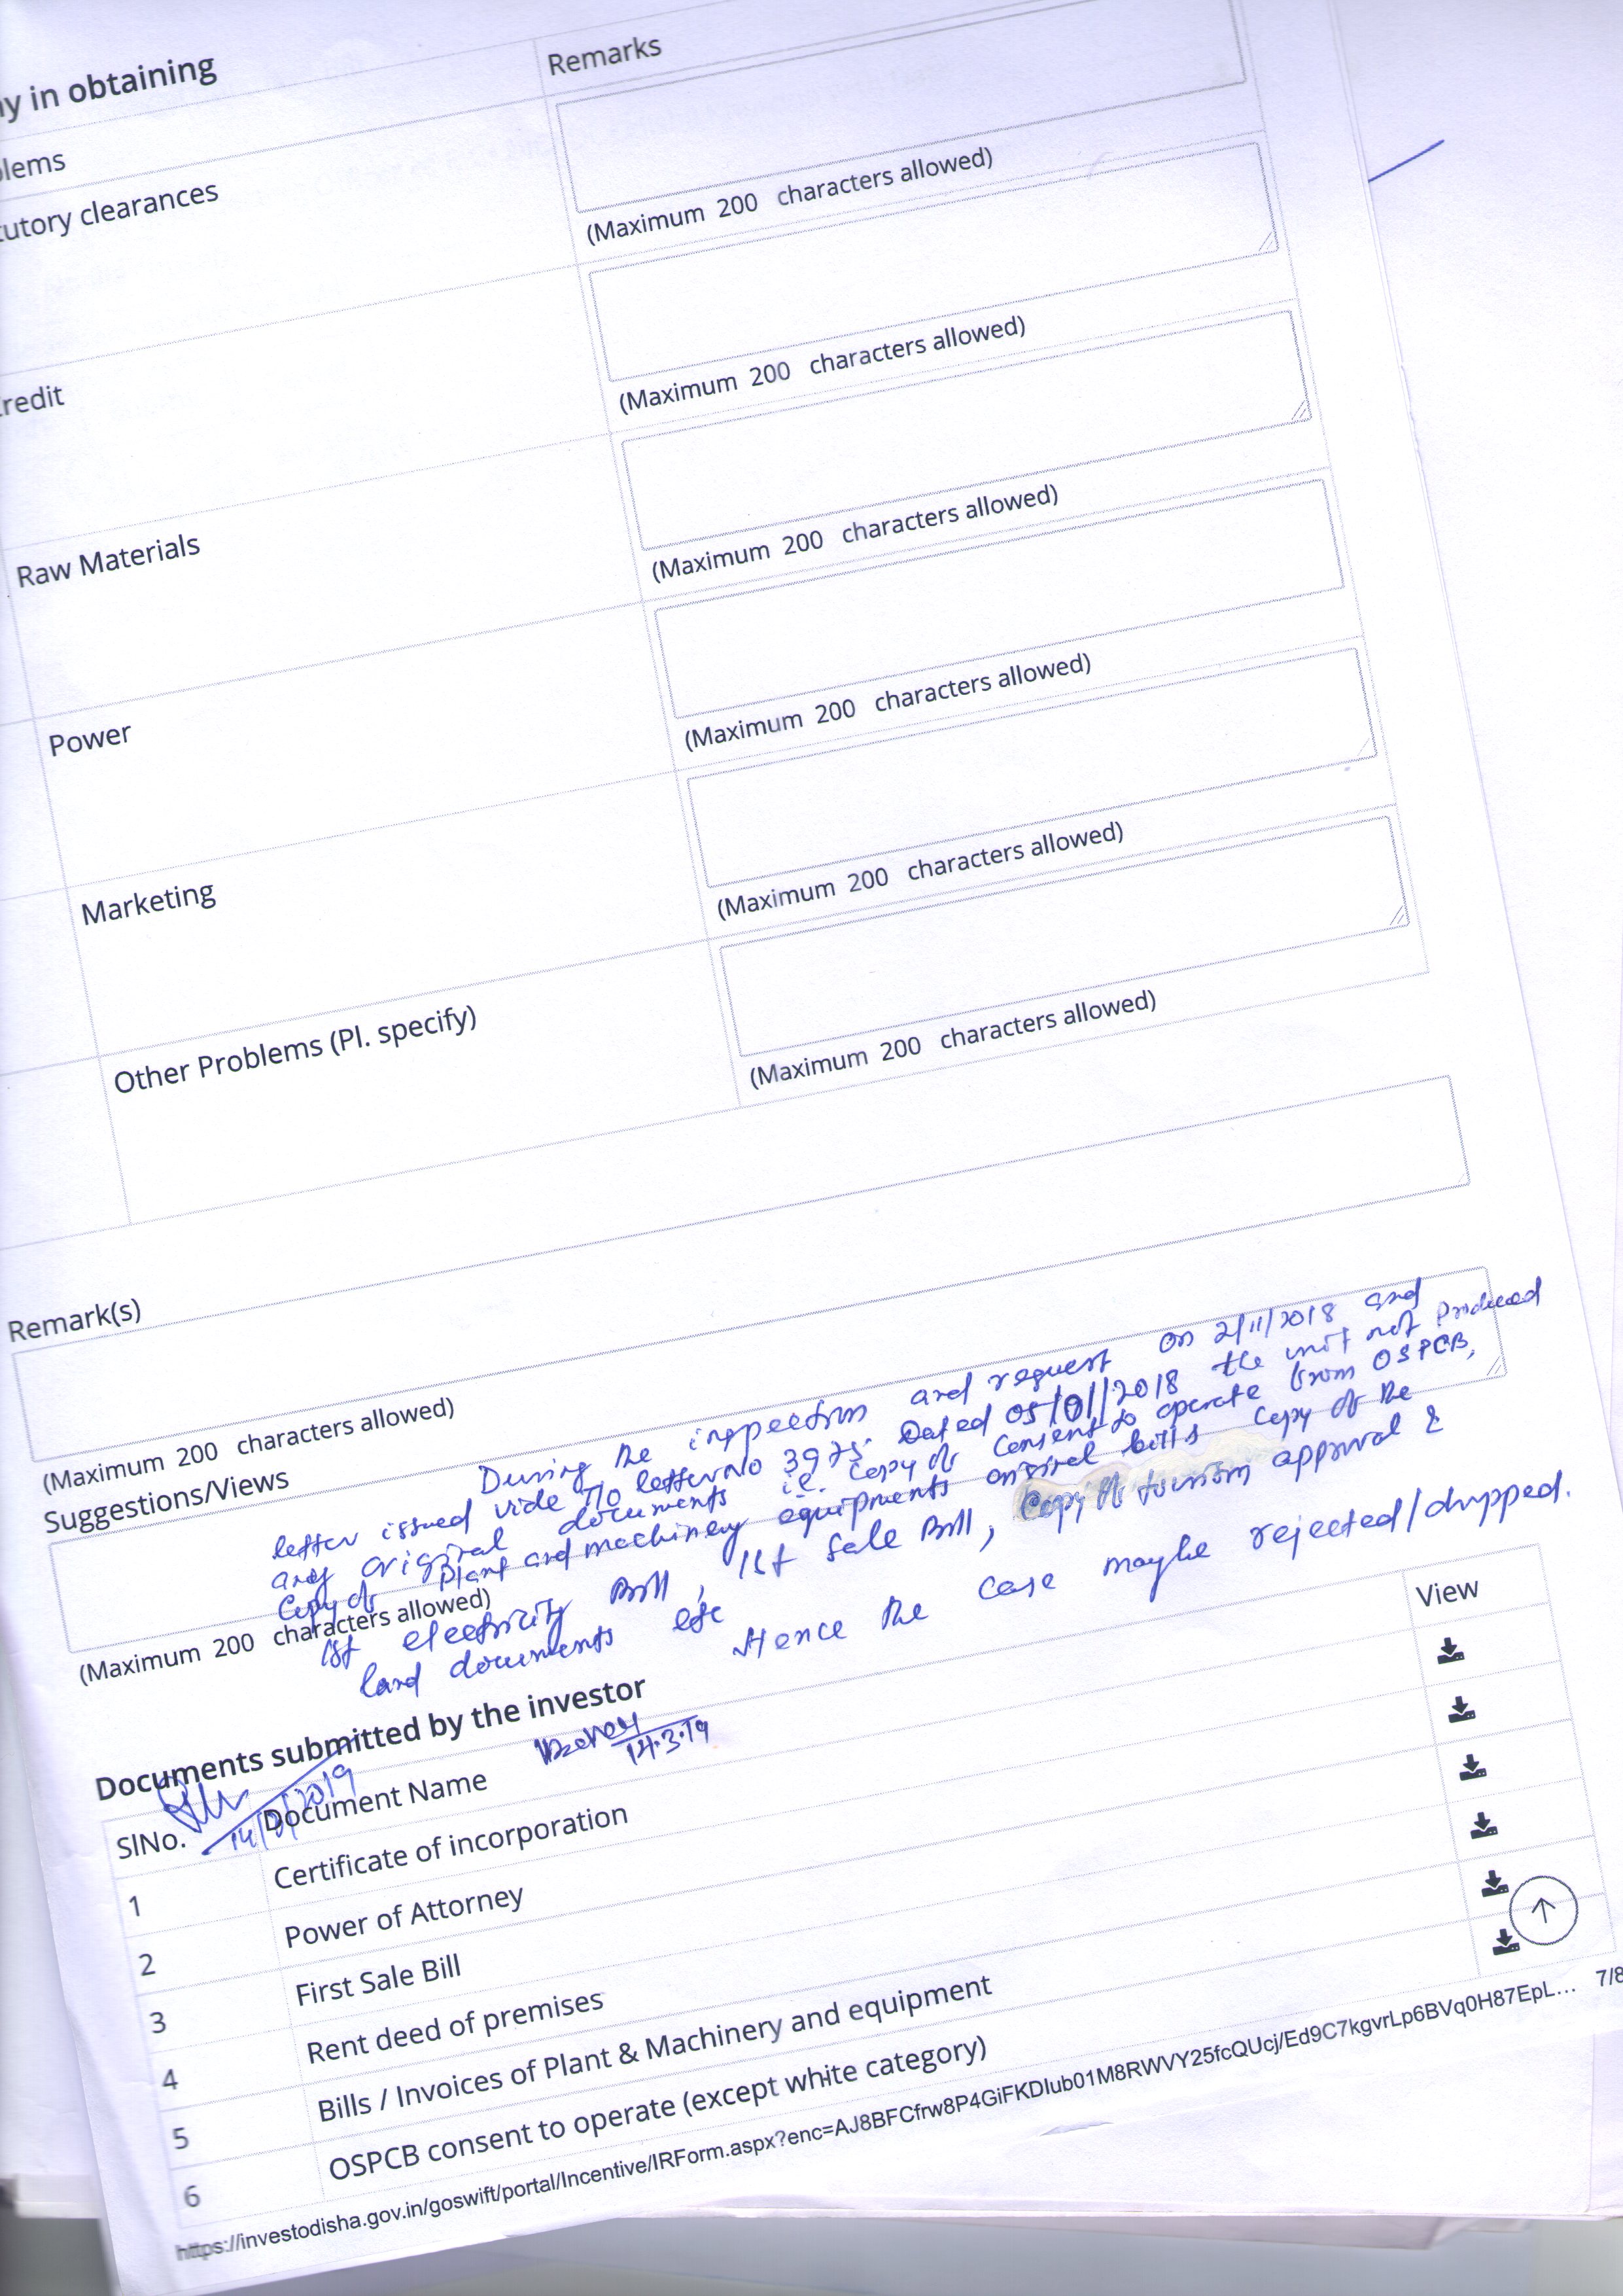 y in obtaining
Remarks
lems
tutory clearances
(Maximum 200 characters allowed)
redit
(Maximum 200 characters allowed)
Raw Materials
(Maximum 200 characters allowed)
Power
(Maximum 200 characters allowed)
Marketing
(Maximum 200 characters allowed)
Other Problems (Pl. specify)
(Maximum 200 characters allowed)
Remark(s)
(Maximum 200 characters allowed)
Suggestions/Views
During the inspection and request on 2/11/2018 and
letter issued vide letter No 3975. Dated 05/01/2018 the unit not produced
any original documents i.e. Copy of Consent to operate from OSPCB,
Copy of Plant and machinery equipments original bills Copy of the
1st electricity Bill, 1st Sale Bill, Copy of tourism approval &
land documents etc Hence the case maybe rejected/dropped.
(Maximum 200 characters allowed)
Documents submitted by the investor
14.3.19
14/3/2019
SlNo. Document Name View
1 Certificate of incorporation
2 Power of Attorney
3 First Sale Bill
4 Rent deed of premises
5 Bills / Invoices of Plant & Machinery and equipment
6 OSPCB consent to operate (except white category)
https://investodisha.gov.in/goswift/portal/Incentive/IRForm.aspx?enc=AJ8BFCfrw8P4GiFKDIub01M8RWVY25fcQUcj/Ed9C7kgvrLp6BVq0H87EpL... 7/8